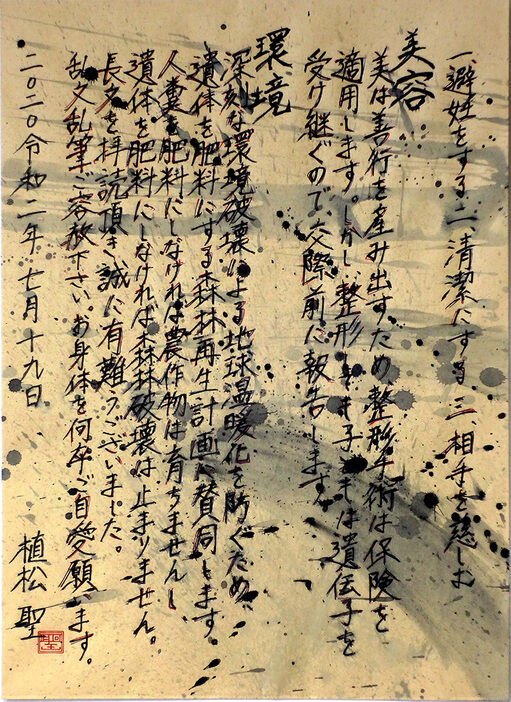 一、避妊をする 二、清潔にする 三、相手を慈しむ
美容
美は善行を産み出すため整形手術は保険を
適用します。しかし整形しても子どもは遺伝子を
受け継ぐので、交際前に報告します。
環境
深刻な環境破壊による地球温暖化を防ぐため、
遺体を肥料にする森林再生計画に賛同します。
人糞を肥料にしなければ農作物は育ちませんし
遺体を肥料にしなければ森林破壊は止まりません。
長文を拝読頂き誠に有難うございました。
乱文乱筆ご容赦下さい。お身体を何卒ご自愛願います。
二〇二〇令和二年七月十九日
植松 聖